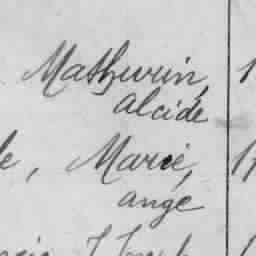 Mathurin, 1
alcide
le, Marie, 17
ange